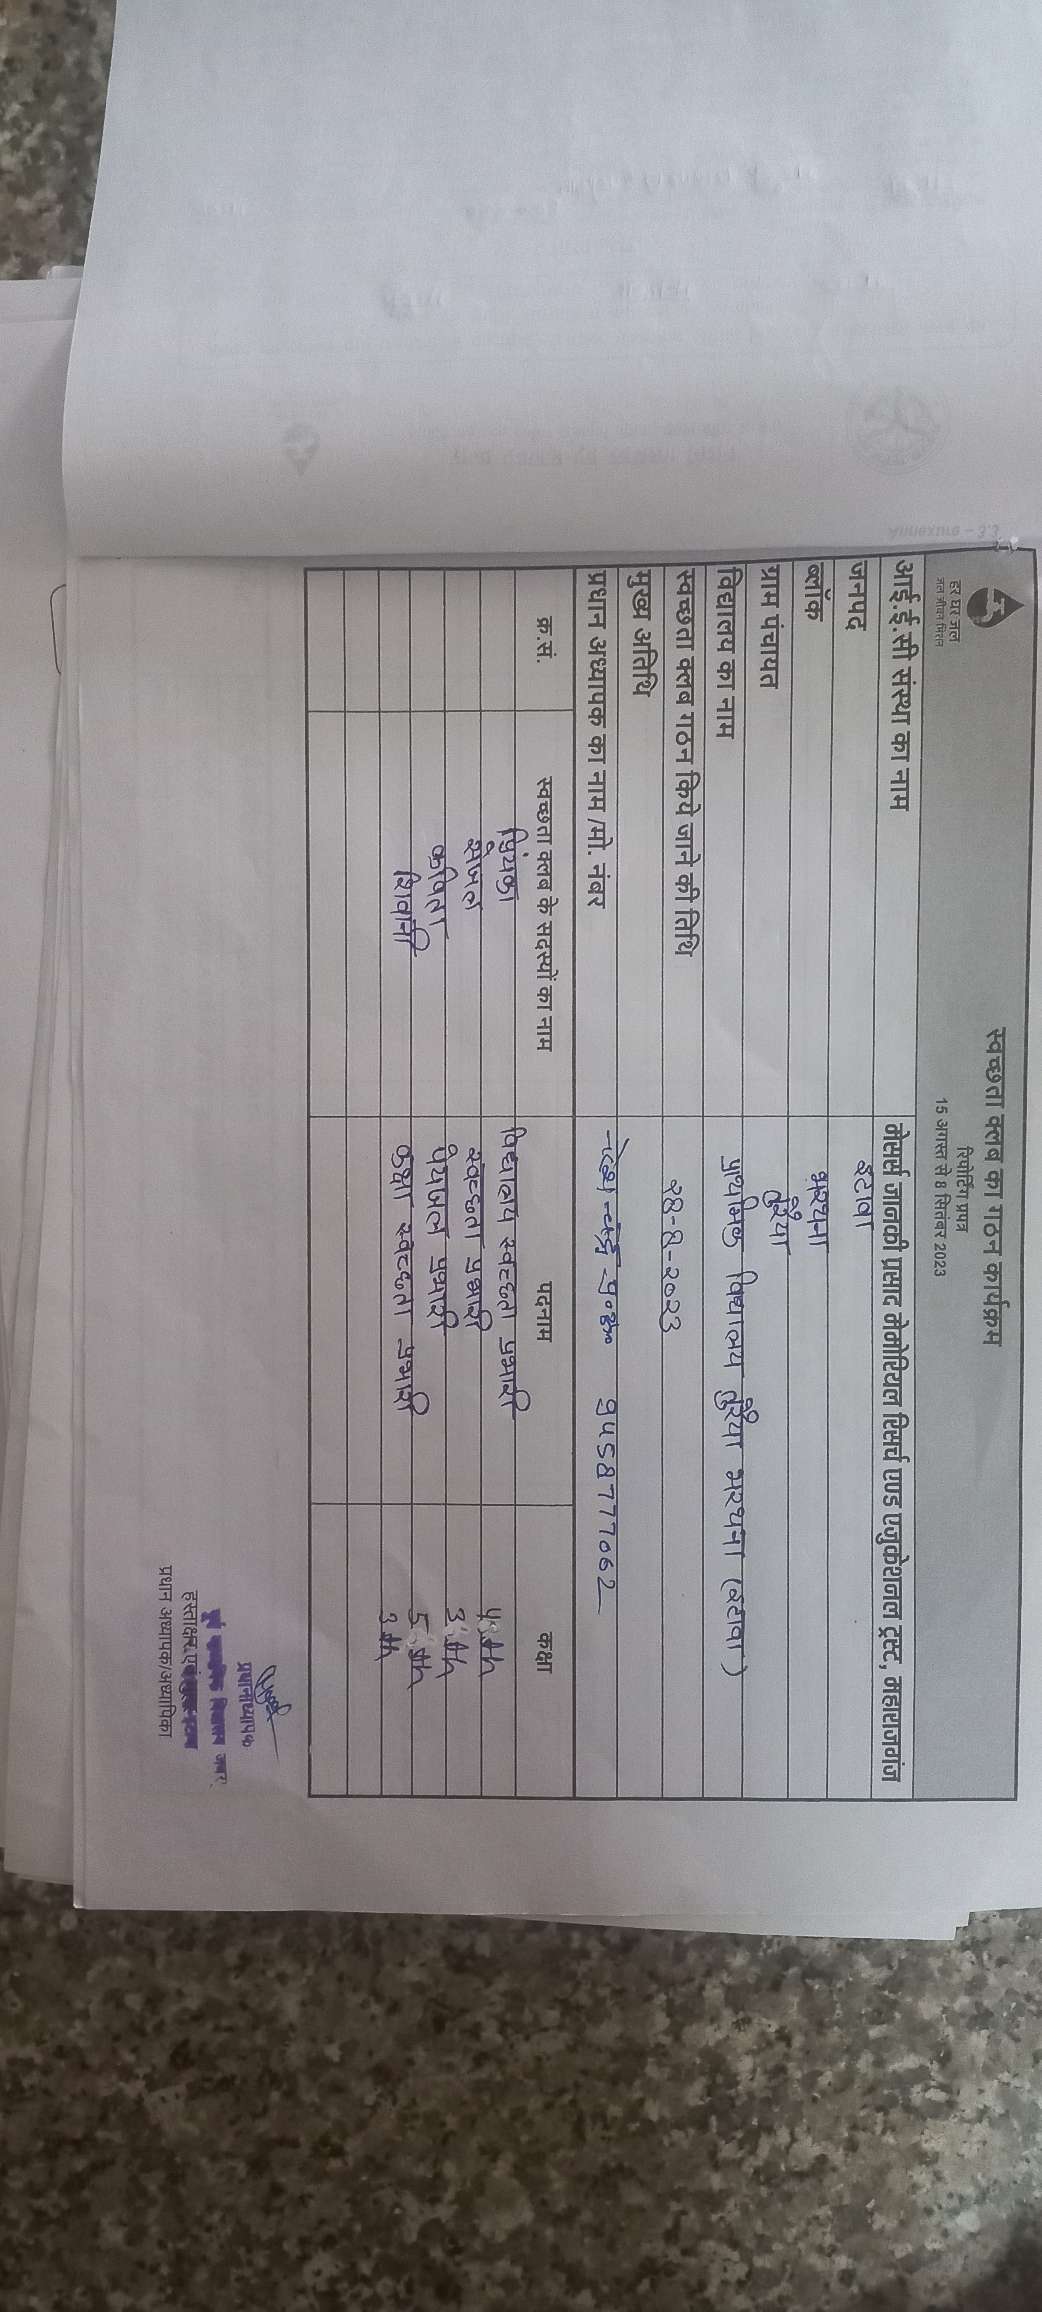 Annexure – 3.3
हर घर जल
जल जीवन मिशन
स्वच्छता क्लब का गठन कार्यक्रम
रिपोर्टिंग प्रपत्र
15 अगस्त से 8 सितंबर 2023
आई.ई.सी संस्था का नाम मेसर्स जानकी प्रसाद मेमोरियल रिसर्च एण्ड एजुकेशनल ट्रस्ट, महाराजगंज
जनपद इटावा
ब्लॉक भरथना
ग्राम पंचायत
विद्यालय का नाम प्राथमिक विद्यालय भरथना (इटावा)
स्वच्छता क्लब गठन किये जाने की तिथि २8-8-२०२3
मुख्य अतिथि
प्रधान अध्यापक का नाम /मो. नंबर 9458777062
क्र.सं. स्वच्छता क्लब के सदस्यों का नाम पदनाम कक्षा
प्रियंका विद्यालय स्वच्छता प्रभारी
सेजल स्वच्छता प्रभारी
कविता पेयजल प्रभारी
शिवानी कक्षा स्वच्छता प्रभारी 3th
प्रधानाध्यापक
हस्ताक्षर
प्रधान अध्यापक/अध्यापिका